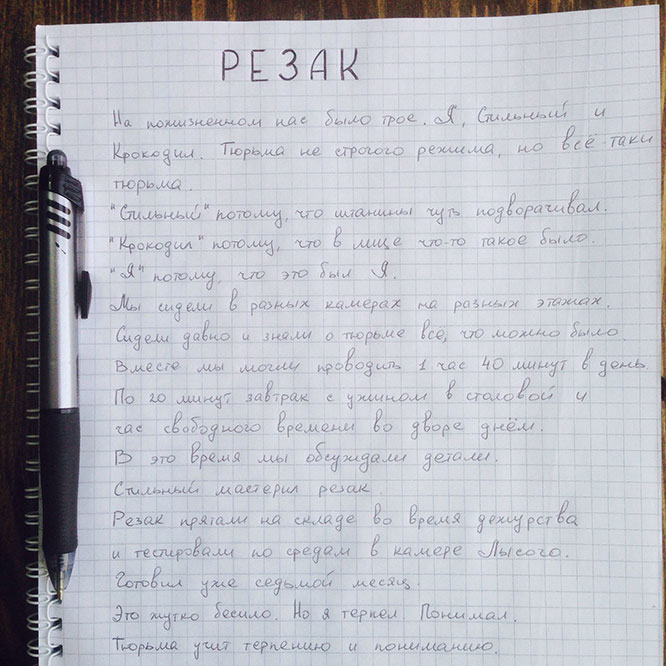 РЕЗАК
На пожизненном нас было трое. Я, Стильный и
Крокодил. Тюрьма не строгого режима, но всё-таки
тюрьма.
"Стильный" потому, что штанины чуть подворачивал.
"Крокодил" потому, что в лице что-то такое было.
"Я" потому, что это был Я.
Мы сидели в разных камерах на разных этажах.
Сидели давно и знали о тюрьме все, что можно было.
Вместе мы могли проводить 1 час 40 минут в день.
По 20 минут завтрак с ужином в столовой и
час свободного времени во дворе днём.
В это время мы обсуждали детали.
Стильный мастерил резак.
Резак прятали на складе во время дежурства
и тестировали по средам в камере Лысого.
Готовил уже седьмой месяц.
Это жутко бесило. Но я терпел. Понимал.
Тюрьма учит терпению и пониманию.